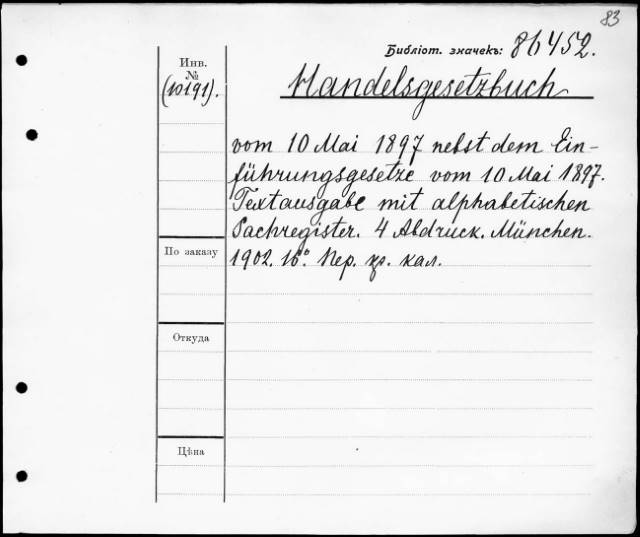 83
Библіот. значекъ: 86452.
Инв.
№
(10191).
Handelsgesetzbuch
vom 10 Mai 1897 nebst dem Ein-
führungsgesetze vom 10 Mai 1897.
Textausgabe mit alphabetischen
Sachregister. 4 Abdruck. München.
1902. 16° Пер. кол.
По заказу
Откуда
Цѣна